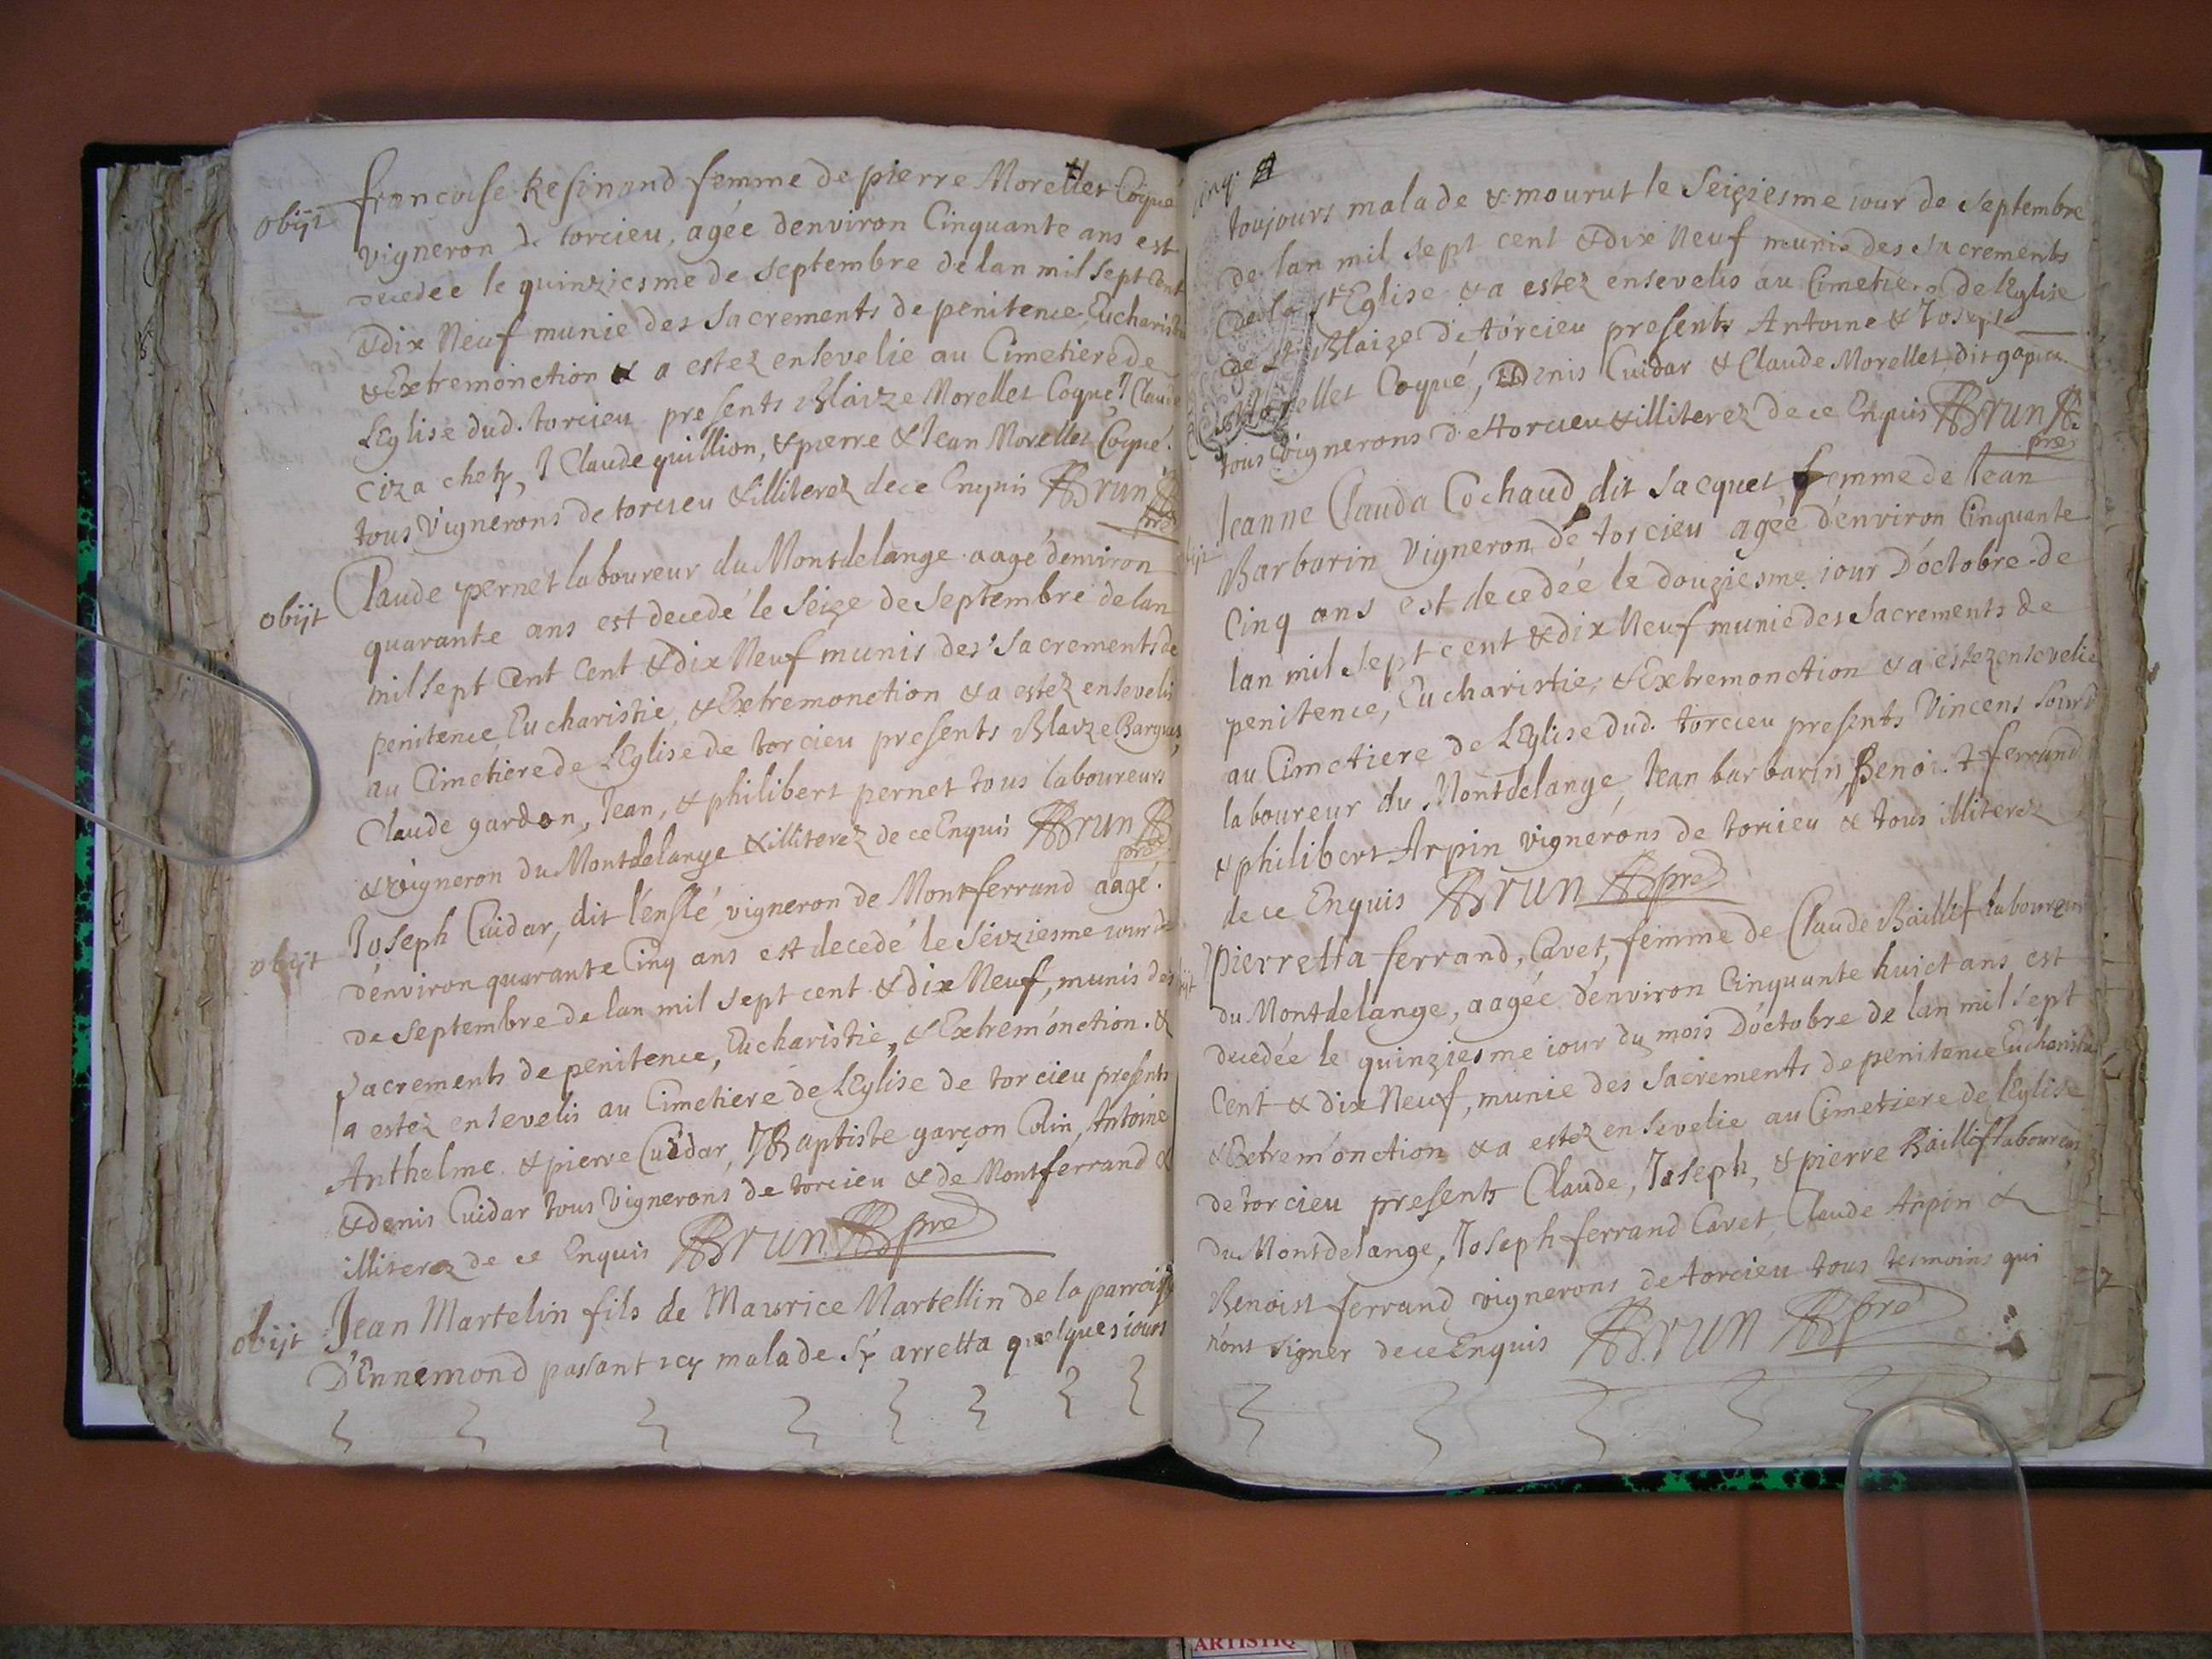 obijt
francoise Resinand femme de pierre Morellet Coqué
vigneron de torcieu, agée denviron Cinquante ans est
decedee le quinziesme de septembre de lan mil sept cent
& dix Neuf munie des Sacrements de penitence, Eucharistie
& Extremonction & a estez ensevelie au Cimetiere de
LEglise dud. torcieu presents Blaize Morellet Coqué, Claude
Ciza chety, Claude guillion, & pierre & Jean Morellet Coqué
tous vignerons de torcieu & illiterez de ce Enquis Brun
pre
obijt
Claude pernet laboureur du Montdelange aagé denviron
quarante ans est decedé le seize de Septembre de lan
mil sept cent Cent & dix Neuf munis des Sacrements de
penitence Eucharistie, & Extremonction & a estez ensevelis
au Cimetiere de LEglise de torcieu presents Blaize
Claude gardon, Jean, & philibert pernet tous laboureurs
& vigneron du Montdelange & illiterez de ce Enquis Brun
pre
obijt
Joseph Cuidar, dit l'enflé, vigneron de Montferrand aagé
d'environ quarante Cinq ans est decedé le seiziesme iour de
de septembre de lan mil sept cent & dix Neuf, munis des
Sacrements de penitence, Eucharistie, & Extrem'onction. &
a estez ensevelis au Cimetiere de LEglise de torcieu presents
Anthelme & pierre Cuidar, JBaptiste garçon Colin, Antoine
& denis Cuidar tous vignerons de torcieu & de Montferrand &
illiterez de ce Enquis Brun pre
obijt
Jean Martelin fils de Maurice Martellin de la parroisse
D'Ennemond passant icy malade s'y arretta quelques iours
cinq.
toujours malade & mourut le Seiziesme iour de septembre
de lan mil sept cent & dix Neuf munis des Sacrements
de la Ste Eglise & a estez ensevelis au Cimetiere de lEglise
de st Blaize de torcieu presents Antoine & Joseph
Morellet Coqué, Denis Cuidar & Claude Morellet dit
tous vignerons de torcieu & illiterez de ce Enquis Brun
pre
Jeanne Clauda Cochaud dit Jacquet, femme de Jean
Barbarin vigneron de torcieu agée d'environ Cinquante
Cinq ans est decedée le douziesme iour D'octobre de
lan mil sept cent & dix Neuf munie des Sacrements de
penitence, Eucharistie, & Extremonction & a estez ensevelie
au Cimetiere de LEglise dud. torcieu presents Vincent
laboureur du Montdelange, Jean barbarin, Benoi.t ferrand
& philibert Arpin vignerons de torcieu & tous illiterez
de ce Enquis Brun pre
Pierretta ferrand, Cavet, femme de Claude Baillif laboureur
du Montdelange, aagée d'environ Cinquante huict ans est
decedée le quinziesme iour du mois D'octobre de lan mil sept
Cent & dix Neuf, munie des Sacrements de penitence Eucharistie
& Extrem'onction & a estez ensevelie au Cimetiere de lEglise
de torcieu presents Claude, Joseph, & pierre Baillif laboureurs
du Montdelange, Joseph ferrand Cavet, Claude Arpin &
Benoist ferrand vignerons de torcieu tous tesmoins qui
n'ont signer de ce Enquis Brun pre
ARTISTIQ